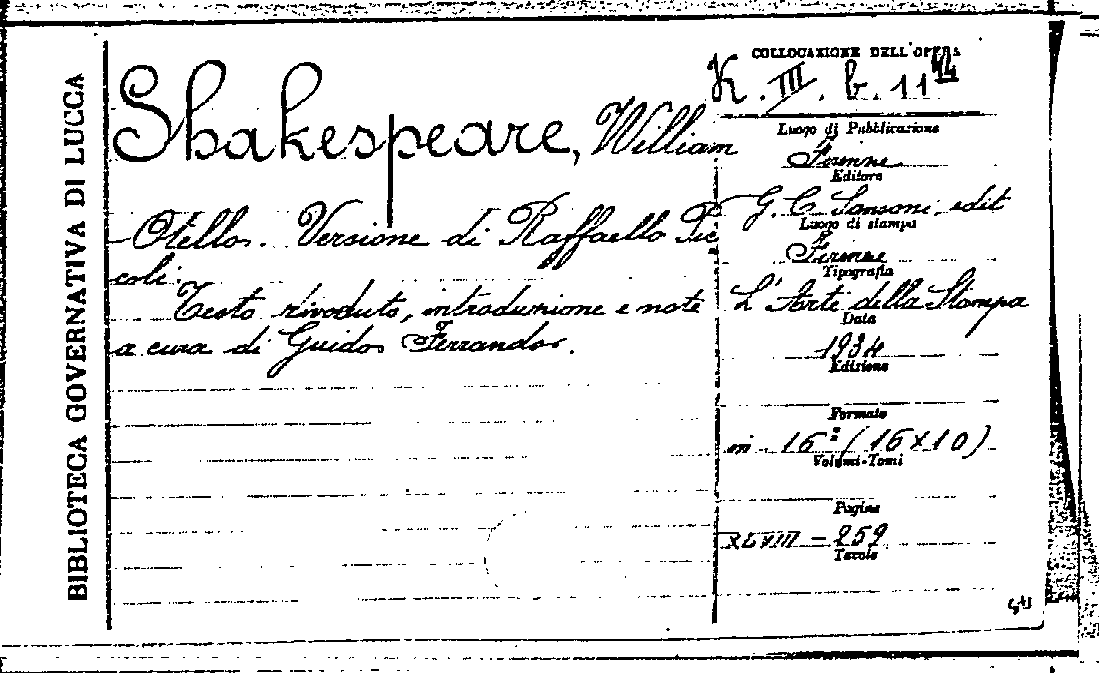 BIBLIOTECA GOVERNATIVA DI LUCCA
Shakespeare, William
Otello. Versione di Raffaello Pic
coli.
Testo riveduto, introduzione e note
a cura di Guido Ferrando.
COLLOCAZIONE DELL'OPERA
K. III. b. 11
Luogo di Pubblicazione
Firenze
Editore
G. C. Sansoni. edit
Luogo di stampa
Firenze
Tipografia
L'Arte della Stampa
Data
1934
Edizione
Formato
in - 16° (16 x 10)
Volumi-Tomi
Pagine
XLVIII - 259
Tavole